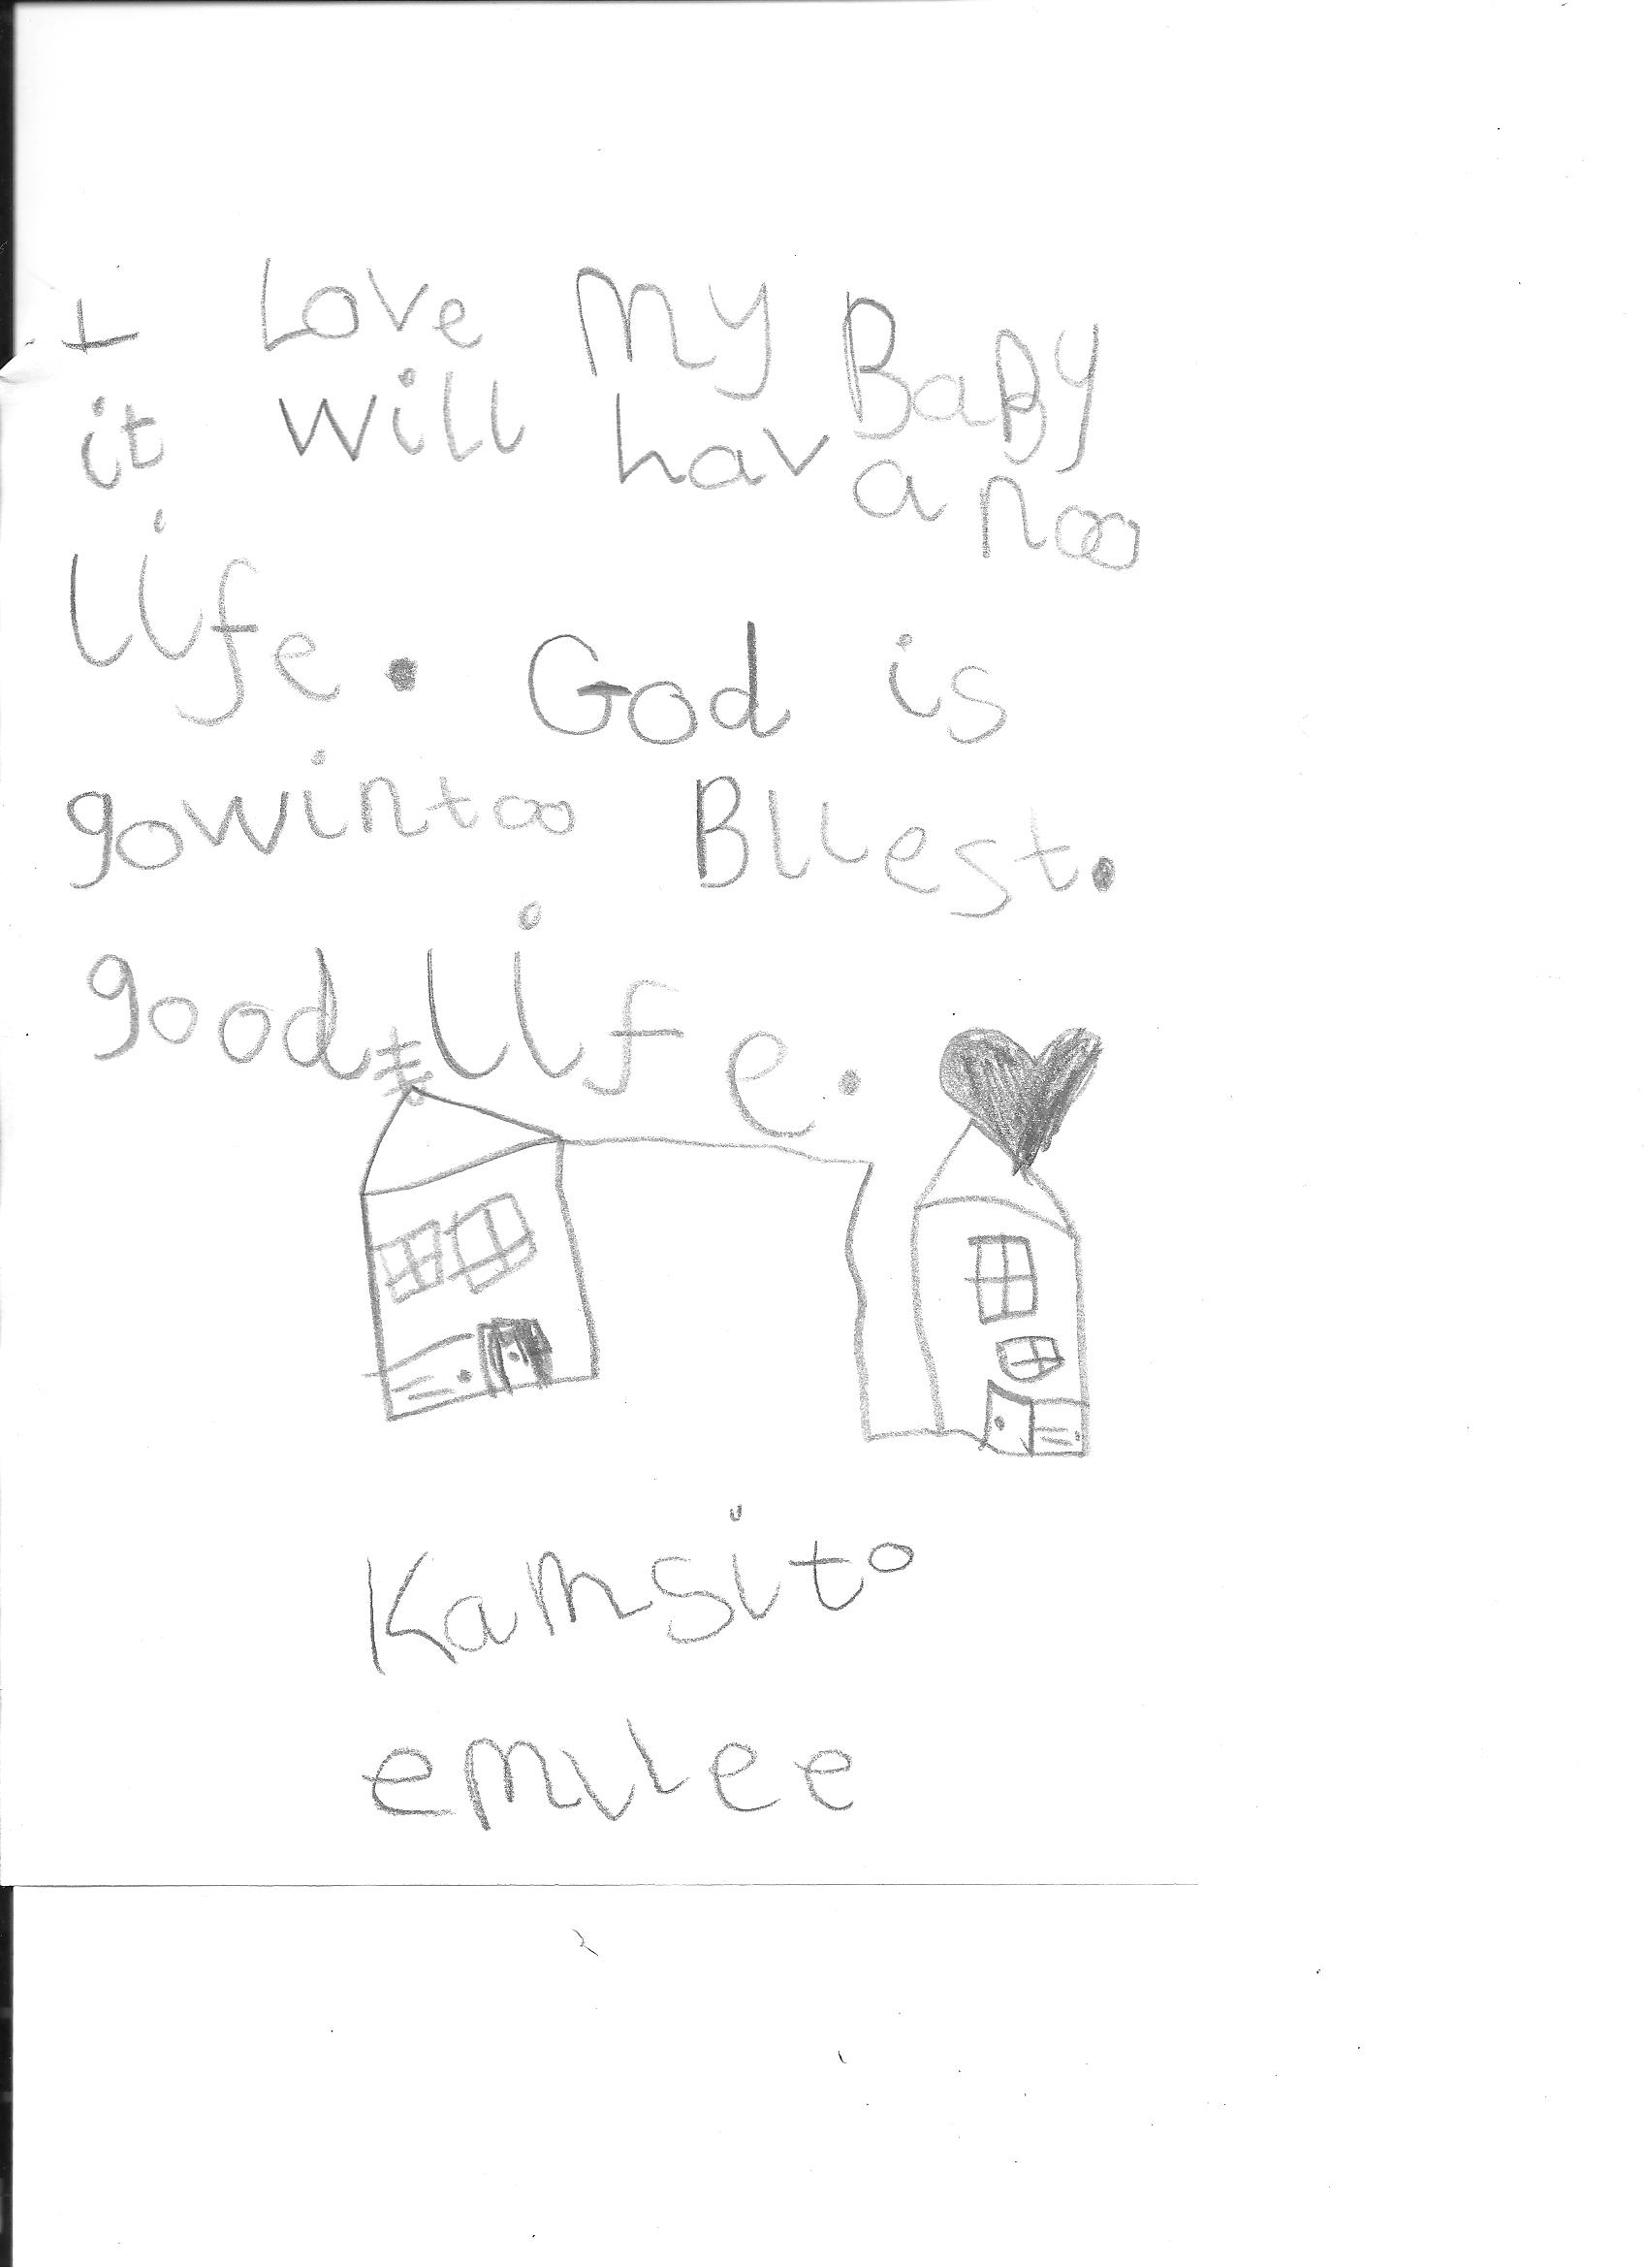 I Love My BaBy
it will hav a noo
life. God is
gowintoo Bllest.
good life.
Kamsito
emilee